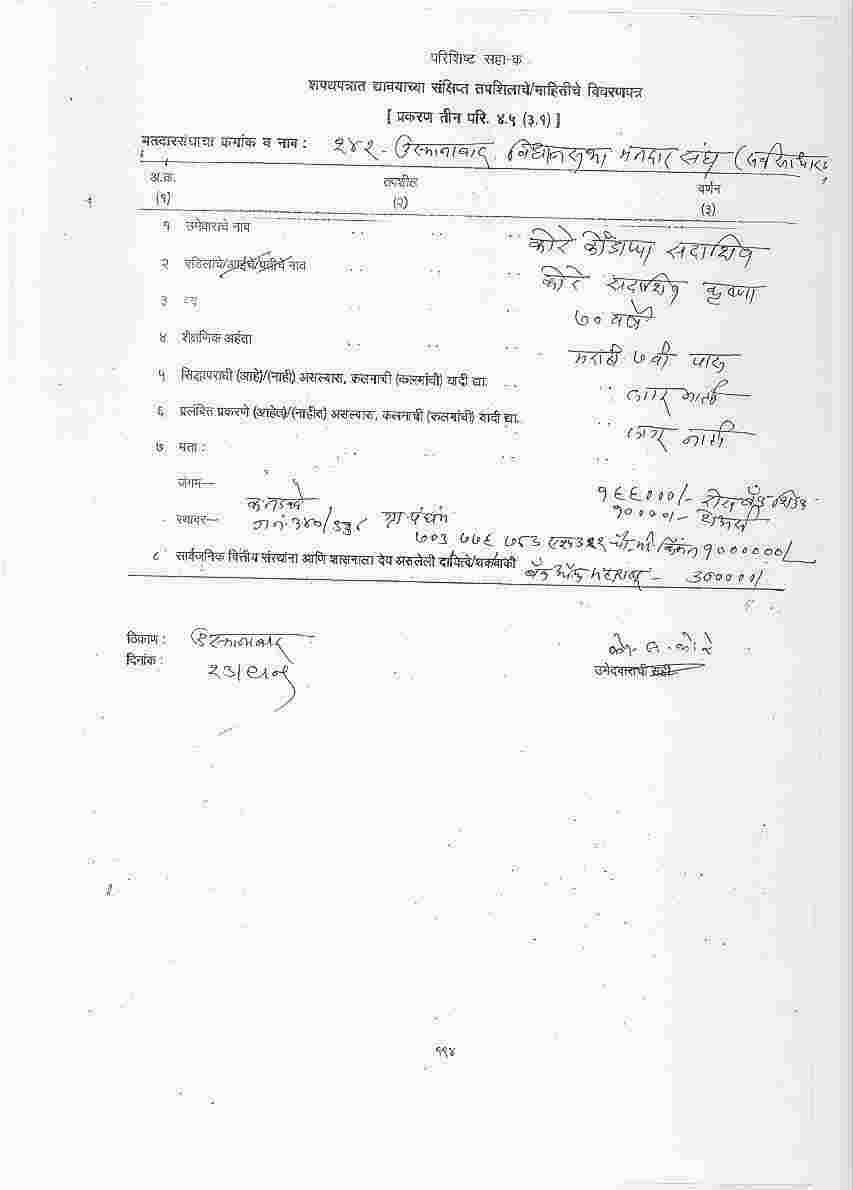 परिशिष्ट सहा-क
शपथपत्रात द्यावयाच्या संक्षिप्त तपशिलाचे/माहितीचे विवरणपत्र
[ प्रकरण तीन परि. ४.५ (३.१) ]
मतदारसंघाचा क्रमांक व नाव : २४२ - उस्मानाबाद विधानसभा मतदार संघ (सर्वसाधारण
अ.क्र. तपशील वर्णन
(१) (२) (३)
१ उमेवाराचे नाव कोरे कोंडाप्पा सदाशिव
२ वडिलांचे/आईचे/पतीचे नाव कोरे सदाशिव कृष्णा
३ वय ७० वर्षे
४ शैक्षणिक अर्हता मराठी ७ वी पास
५ सिद्धापराधी (आहे)/(नाही) असल्यास, कलमाची (कलमांची) यादी द्या. नाही
६ प्रलंबित प्रकरणे (आहेत)/(नाहीत) असल्यास, कलमाची (कलमांची) यादी द्या. नाही
७ मत्ता :
जंगम— १६६०००/-
१००००/-
स्थावर— ग.नं. ३४०/ ७०३ ७७६ ७८३ किंमत १००००००/
८ सार्वजनिक वित्तीय संस्थांना आणि शासनाला देय असलेली दायित्वे/थकबाकी बँक ऑफ महाराष्ट्र - ३०००००/
ठिकाण : उस्मानाबाद
दिनांक :
को. स. कोरे
उमेदवाराची सही
११४